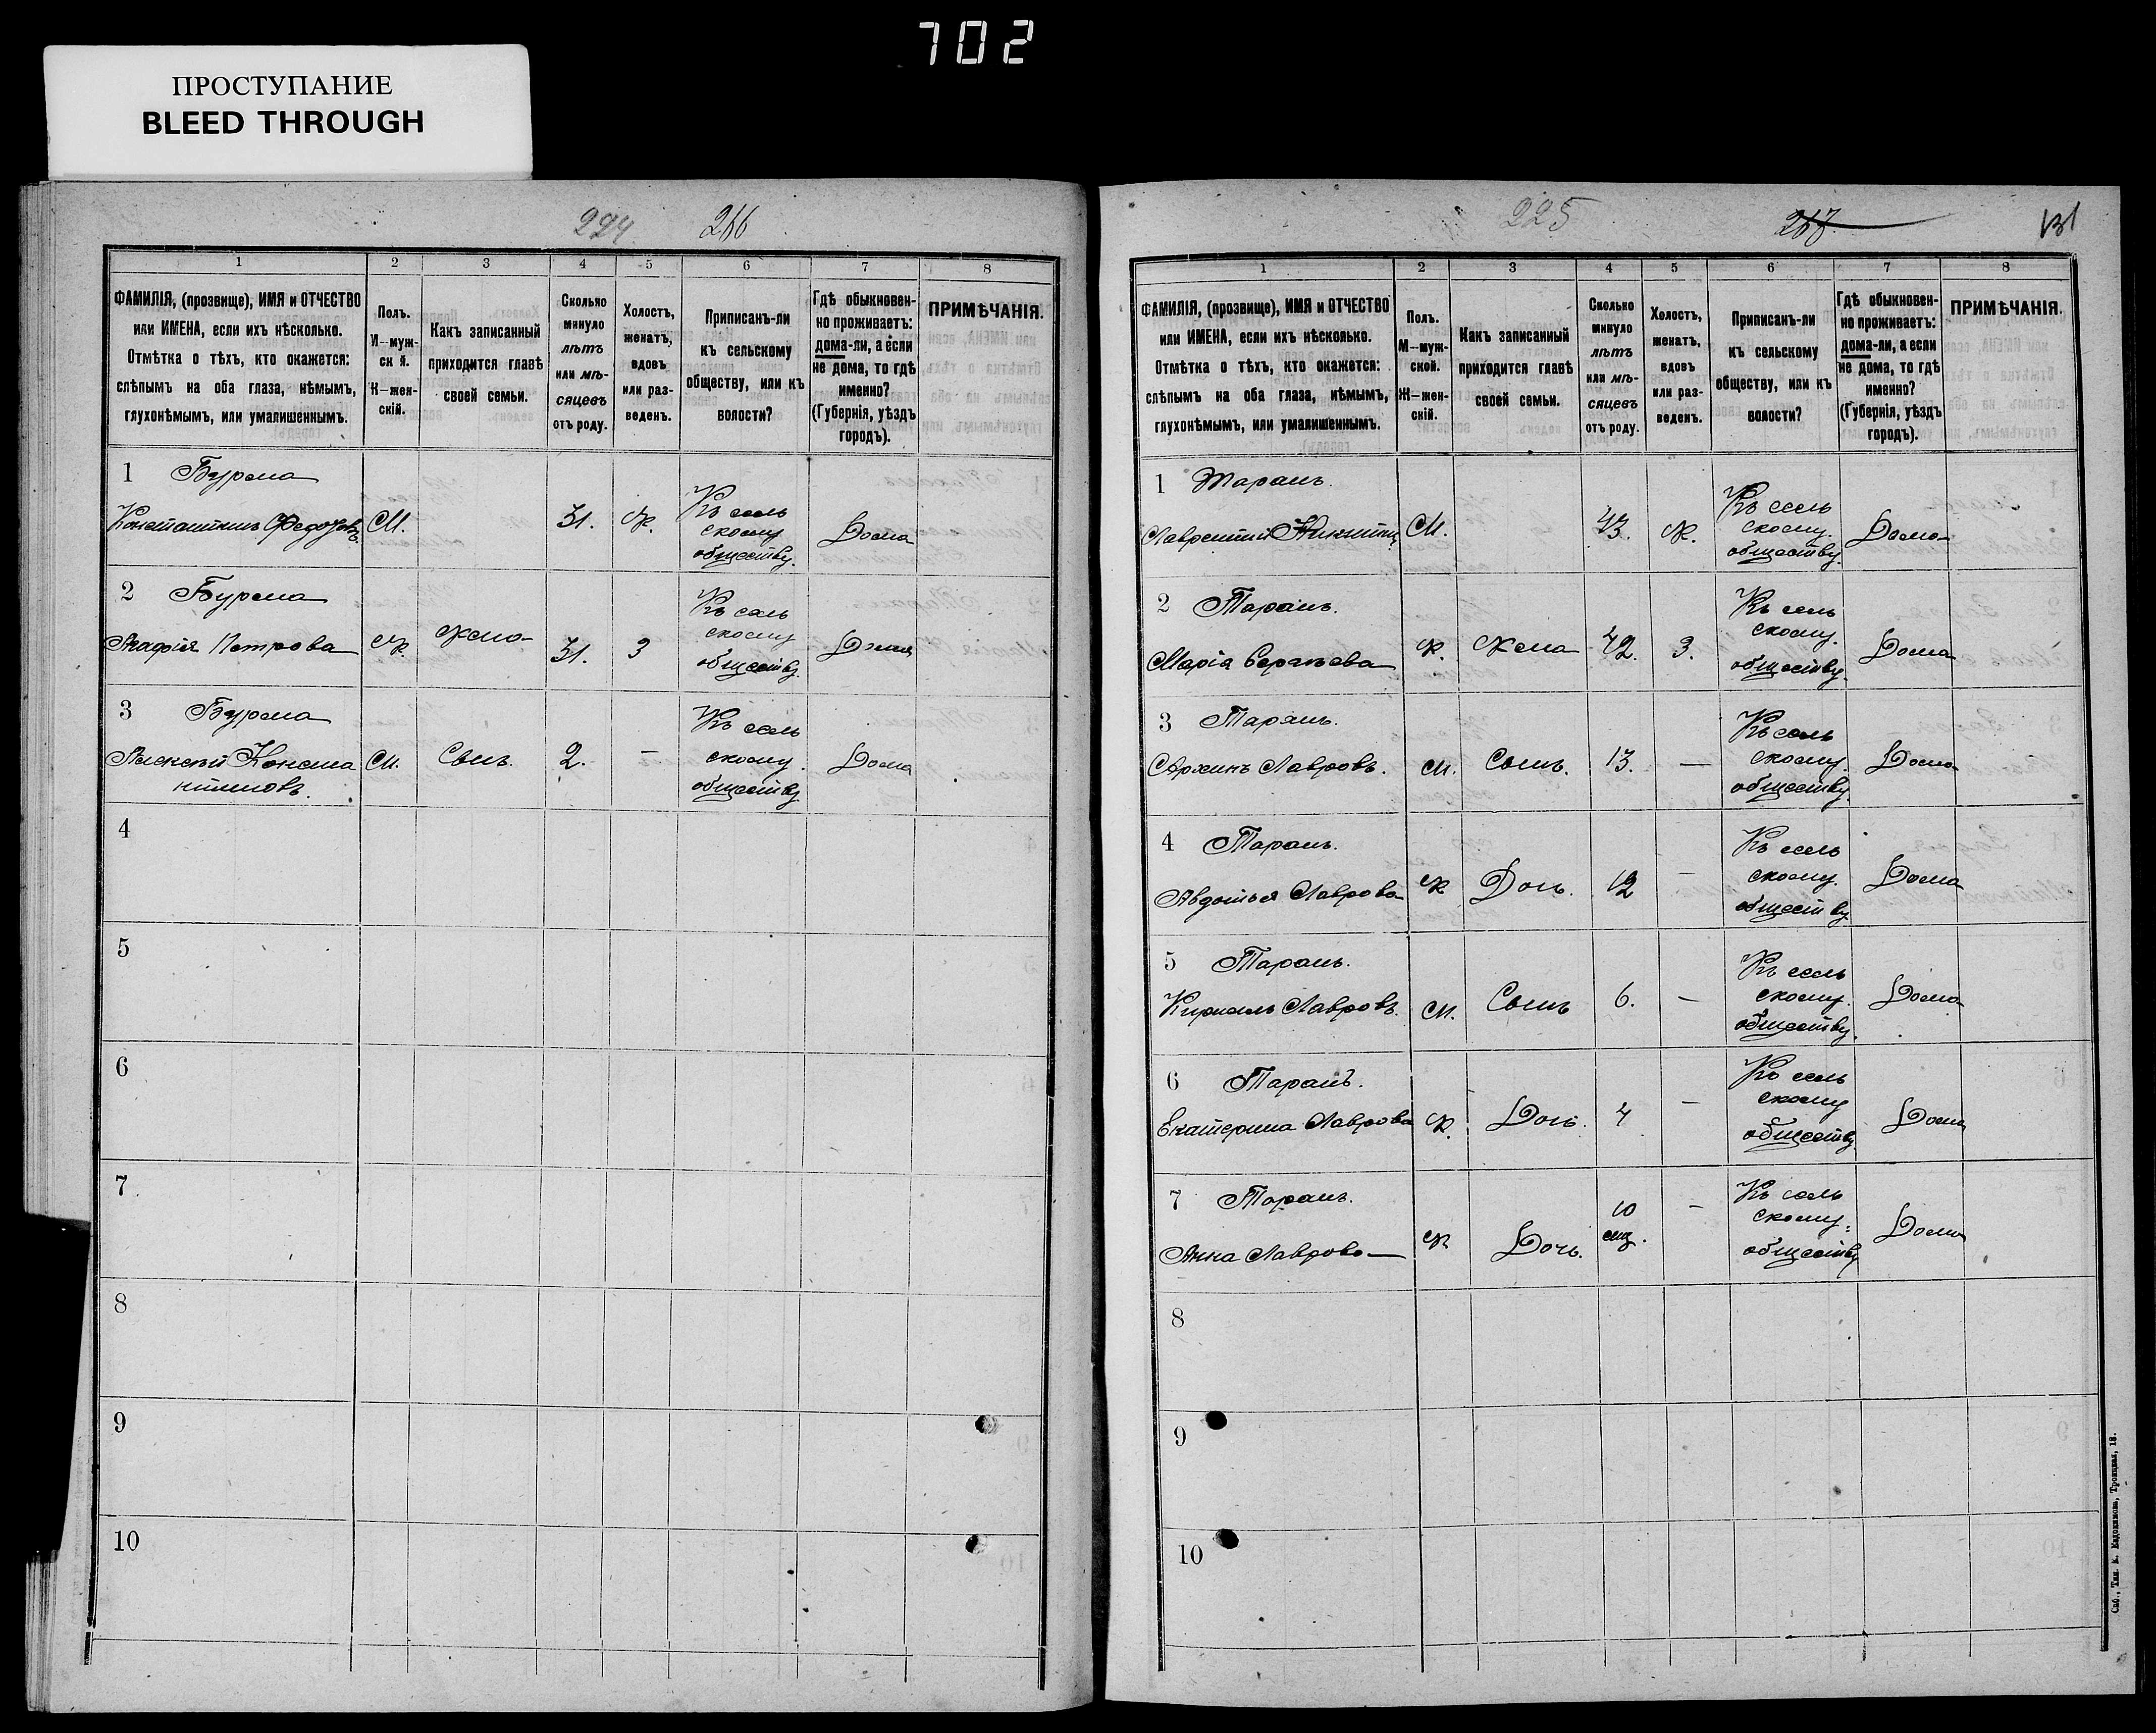 702
ПРОСТУПАНИЕ
BLEED THROUGH
224 266
1 2 3 4 5 6 7 8
ФАМИЛІЯ, (прозвище), ИМЯ и ОТЧЕСТВО или ИМЕНА, если ихъ нѣсколько. Отмѣтка о тѣхъ, кто окажется: слѣпымъ на оба глаза, нѣмымъ, глухонѣмымъ, или умалишеннымъ.
Полъ. М--мужской. Ж--женскій.
Какъ записанный приходится главѣ своей семьи.
Сколько минуло лѣтъ или мѣсяцевъ отъ роду.
Холостъ, женатъ, вдовъ или разведенъ.
Приписанъ-ли къ сельскому обществу, или къ волости?
Гдѣ обыкновенно проживаетъ: дома-ли, а если не дома, то гдѣ именно? (Губернія, уѣздъ городъ).
ПРИМѢЧАНІЯ.
1 Бурма
Константинъ Федоровъ. М. 31. Ж. Къ сельскому обществу. Дома
2 Бурма
Агафія Петрова Ж. Жена 31. З Къ сельскому обществу. Дома
3 Бурма
Алексѣй Константиновъ. М. Сынъ. 2. – Къ сельскому обществу Дома
4
5
6
7
8
9
10
225 267 131
1 2 3 4 5 6 7 8
ФАМИЛІЯ, (прозвище), ИМЯ и ОТЧЕСТВО или ИМЕНА, если ихъ нѣсколько. Отмѣтка о тѣхъ, кто окажется: слѣпымъ на оба глаза, нѣмымъ, глухонѣмымъ, или умалишеннымъ.
Полъ. М--мужской. Ж--женскій.
Какъ записанный приходится главѣ своей семьи.
Сколько минуло лѣтъ или мѣсяцевъ отъ роду.
Холостъ, женатъ, вдовъ или разведенъ.
Приписанъ-ли къ сельскому обществу, или къ волости?
Гдѣ обыкновенно проживаетъ: дома-ли, а если не дома, то гдѣ именно? (Губернія, уѣздъ городъ).
ПРИМѢЧАНІЯ.
1 Таранъ.
Лаврентій Никитинъ М. 43. Ж. Къ сельскому. обществу. Дома
2 Таранъ.
Марія Сергѣева Ж. Жена 42. З. Къ сельскому. обществу. Дома
3 Таранъ.
Архипъ Лавровъ. М. Сынъ. 13. — Къ сельскому. обществу. Дома
4 Таранъ.
Авдотья Лаврова Ж Дочь. 12 – Къ сельскому. обществу Дома
5 Таранъ.
Кирилъ Лавровъ. М. Сынъ 6. – Къ сельскому. обществу. Дома
6 Таранъ.
Екатерина Лаврова Ж. Дочь. 4 – Къ сельскому обществу. Дома
7 Таранъ.
Анна Лаврова Ж Дочь. 10 мц. – Къ сельскому обществу Дома
8
9
10
Спб., Тип. К. Евдокимова, Троицкая, 18.